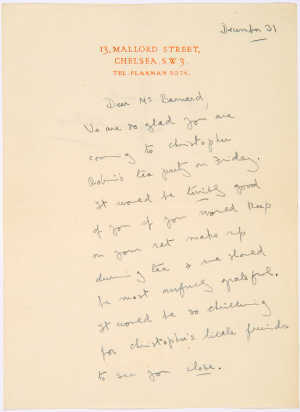 December 31
13, MALLORD STREET,
CHELSEA, S.W.3.
TEL. FLAXMAN 2074.
Dear Mr Barnard,
We are so glad you are
coming to Christopher
Robin's tea party on Friday.
It would be terribly good
of you if you would keep
on your rat make up
during tea & we should
be most awfully grateful.
It would be so thrilling
for Christopher's little friends
to see you close.